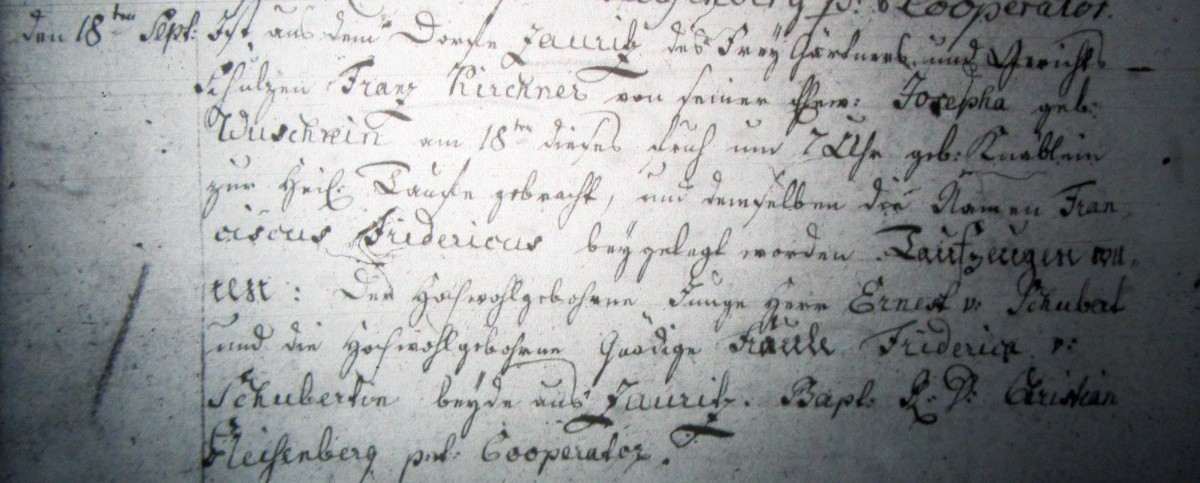 p: t: Cooperator.
den 18ten Sept: Ist aus dem Dorfe Jauritz des Frey Gärtners und Gerichts
Schulzen Franz Kirchner von seiner Ehew: Josepha geb:
Wuschkin am 18ten dieses Fruh um 7 Uhr geb: Knäblein
zur Heil: Taufe gebracht, und demselben die Namen Fran
ciscus Fridericus beygelegt worden. Taufzeugen wa,
ren: Der Hochwohlgebohrne Junge Herr Ernest v: Schubert
und die Hochwohlgebohrne Gnädige Fräule Friderica v:
Schubertin beyde aus Jauritz. Bapt: R: D: Christian
Fleischenberg p:t: Cooperator.